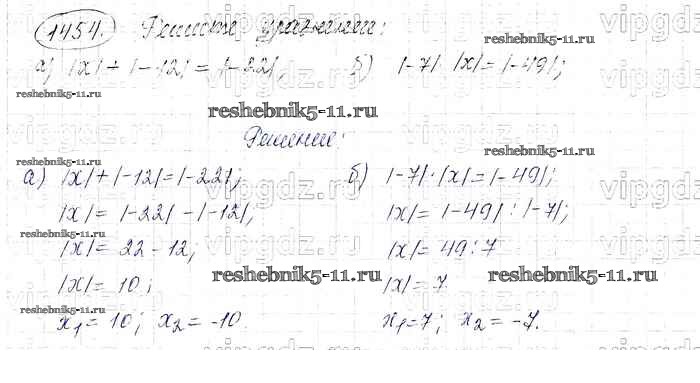 1454. Решите уравнения:
а) |x| + |-12| = |-22|; б) |-7| · |x| = |-49|;
Решение:
а) |x| + |-12| = |-22|; б) |-7| · |x| = |-49|;
|x| = |-22| - |-12|; |x| = |-49| : |-7|;
|x| = 22 - 12; |x| = 49 : 7
|x| = 10; |x| = 7
x₁ = 10; x₂ = -10. x₁ = 7; x₂ = -7.
reshebnik5-11.ru
reshebnik5-11.ru
reshebnik5-11.ru
reshebnik5-11.ru
reshebnik5-11.ru
reshebnik5-11.ru
reshebnik5-11.ru
reshebnik5-11.ru
vipgdz.ru
vipgdz.ru
vipgdz.ru
vipgdz.ru